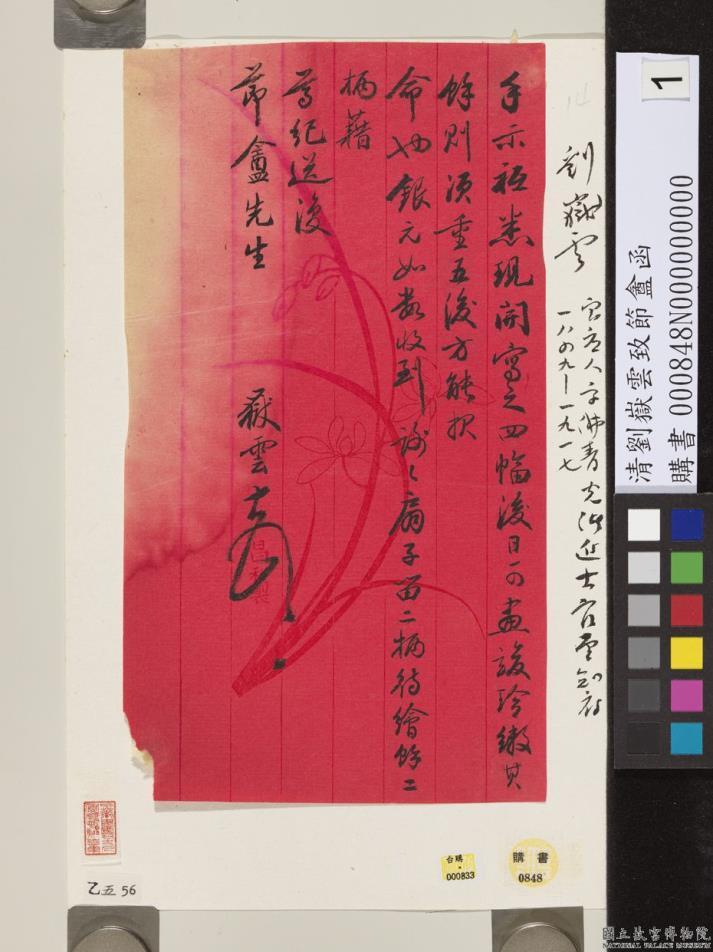 手示祗悉現開寫之四幅後日可畫竣繳其
餘則須重五後方能報
命也銀元如數收到謝〻扇子留二柄待繪餘二
柄藉
尊紀送復
節盦先生
嶽雲
劉嶽雲
寶应人字佛青光緒進士官
一八四九—一九一七
清劉嶽雲致節盦函
購書 000848N000000000
1
14
乙五 56
台購
000833
購書
0848
國立故宮博物院
NATIONAL PALACE MUSEUM